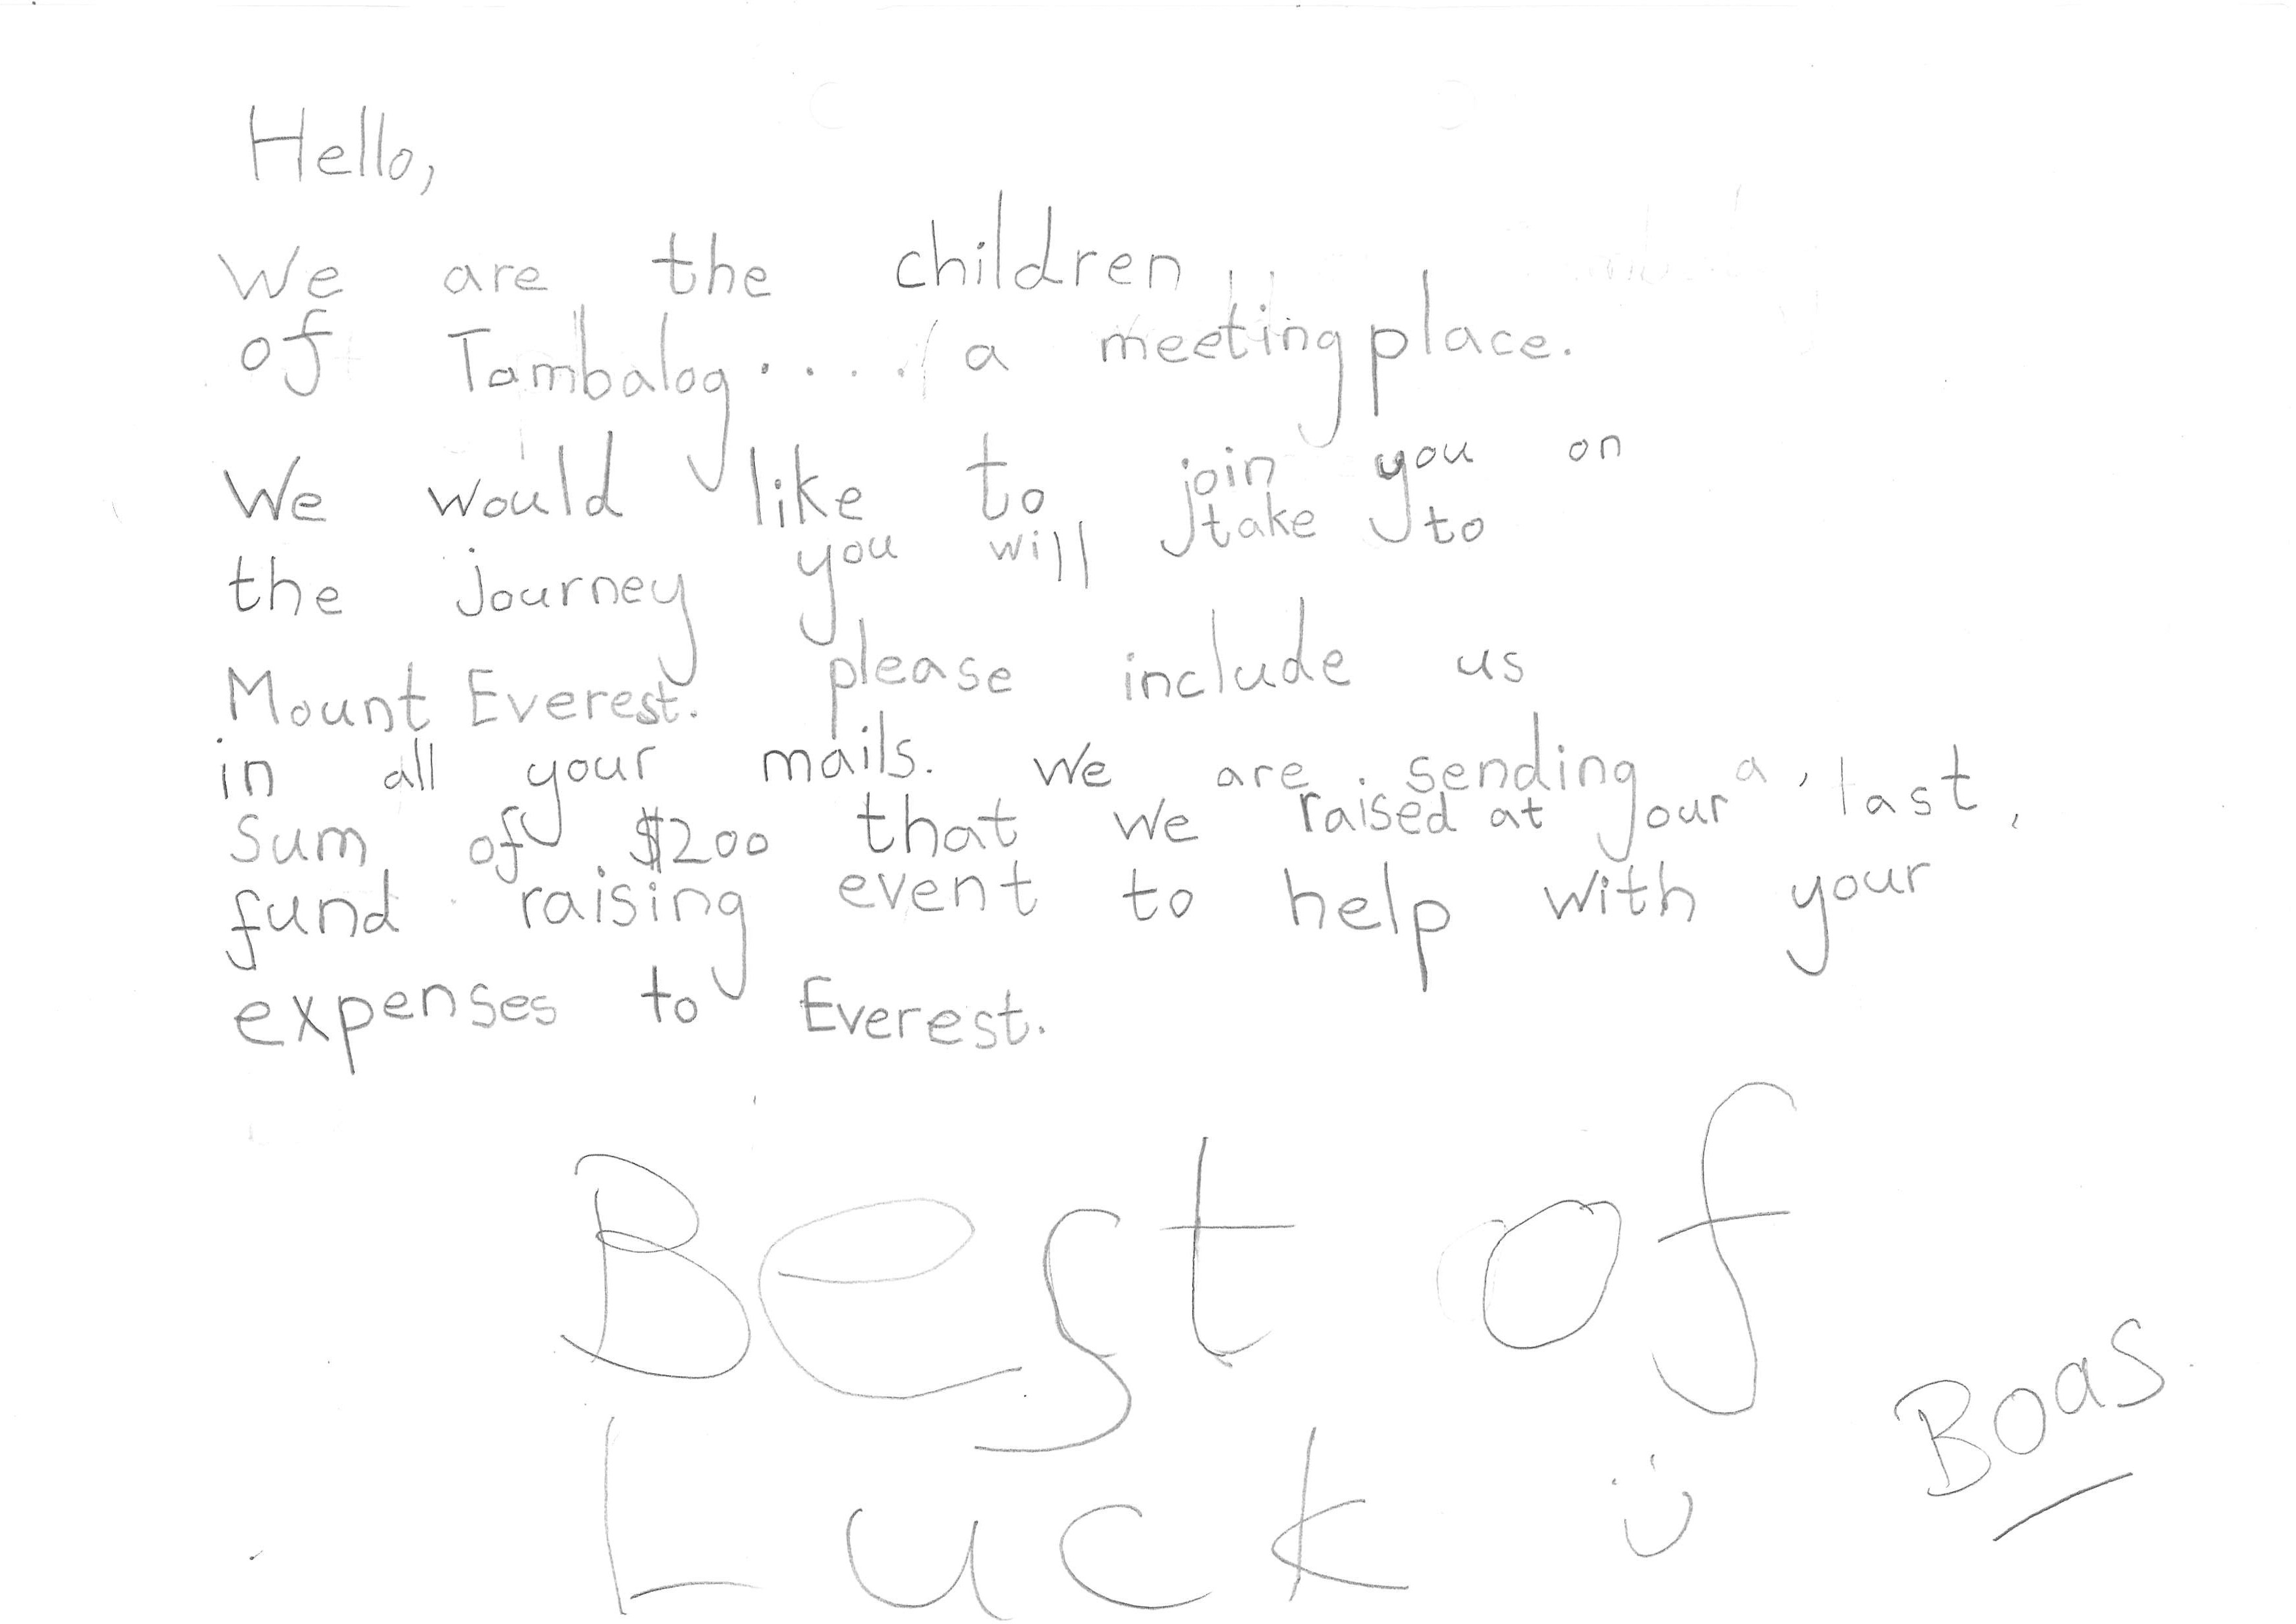 Hello,
We are the children
of Tambalog..... a meeting place.
We would like to join you on
the journey you will take to
Mount Everest. please include us
in all your mails. We are sending a
sum of $200 that we raised at our last
fund raising event to help with your
expenses to Everest.
Best of
Luck :)
Boas.